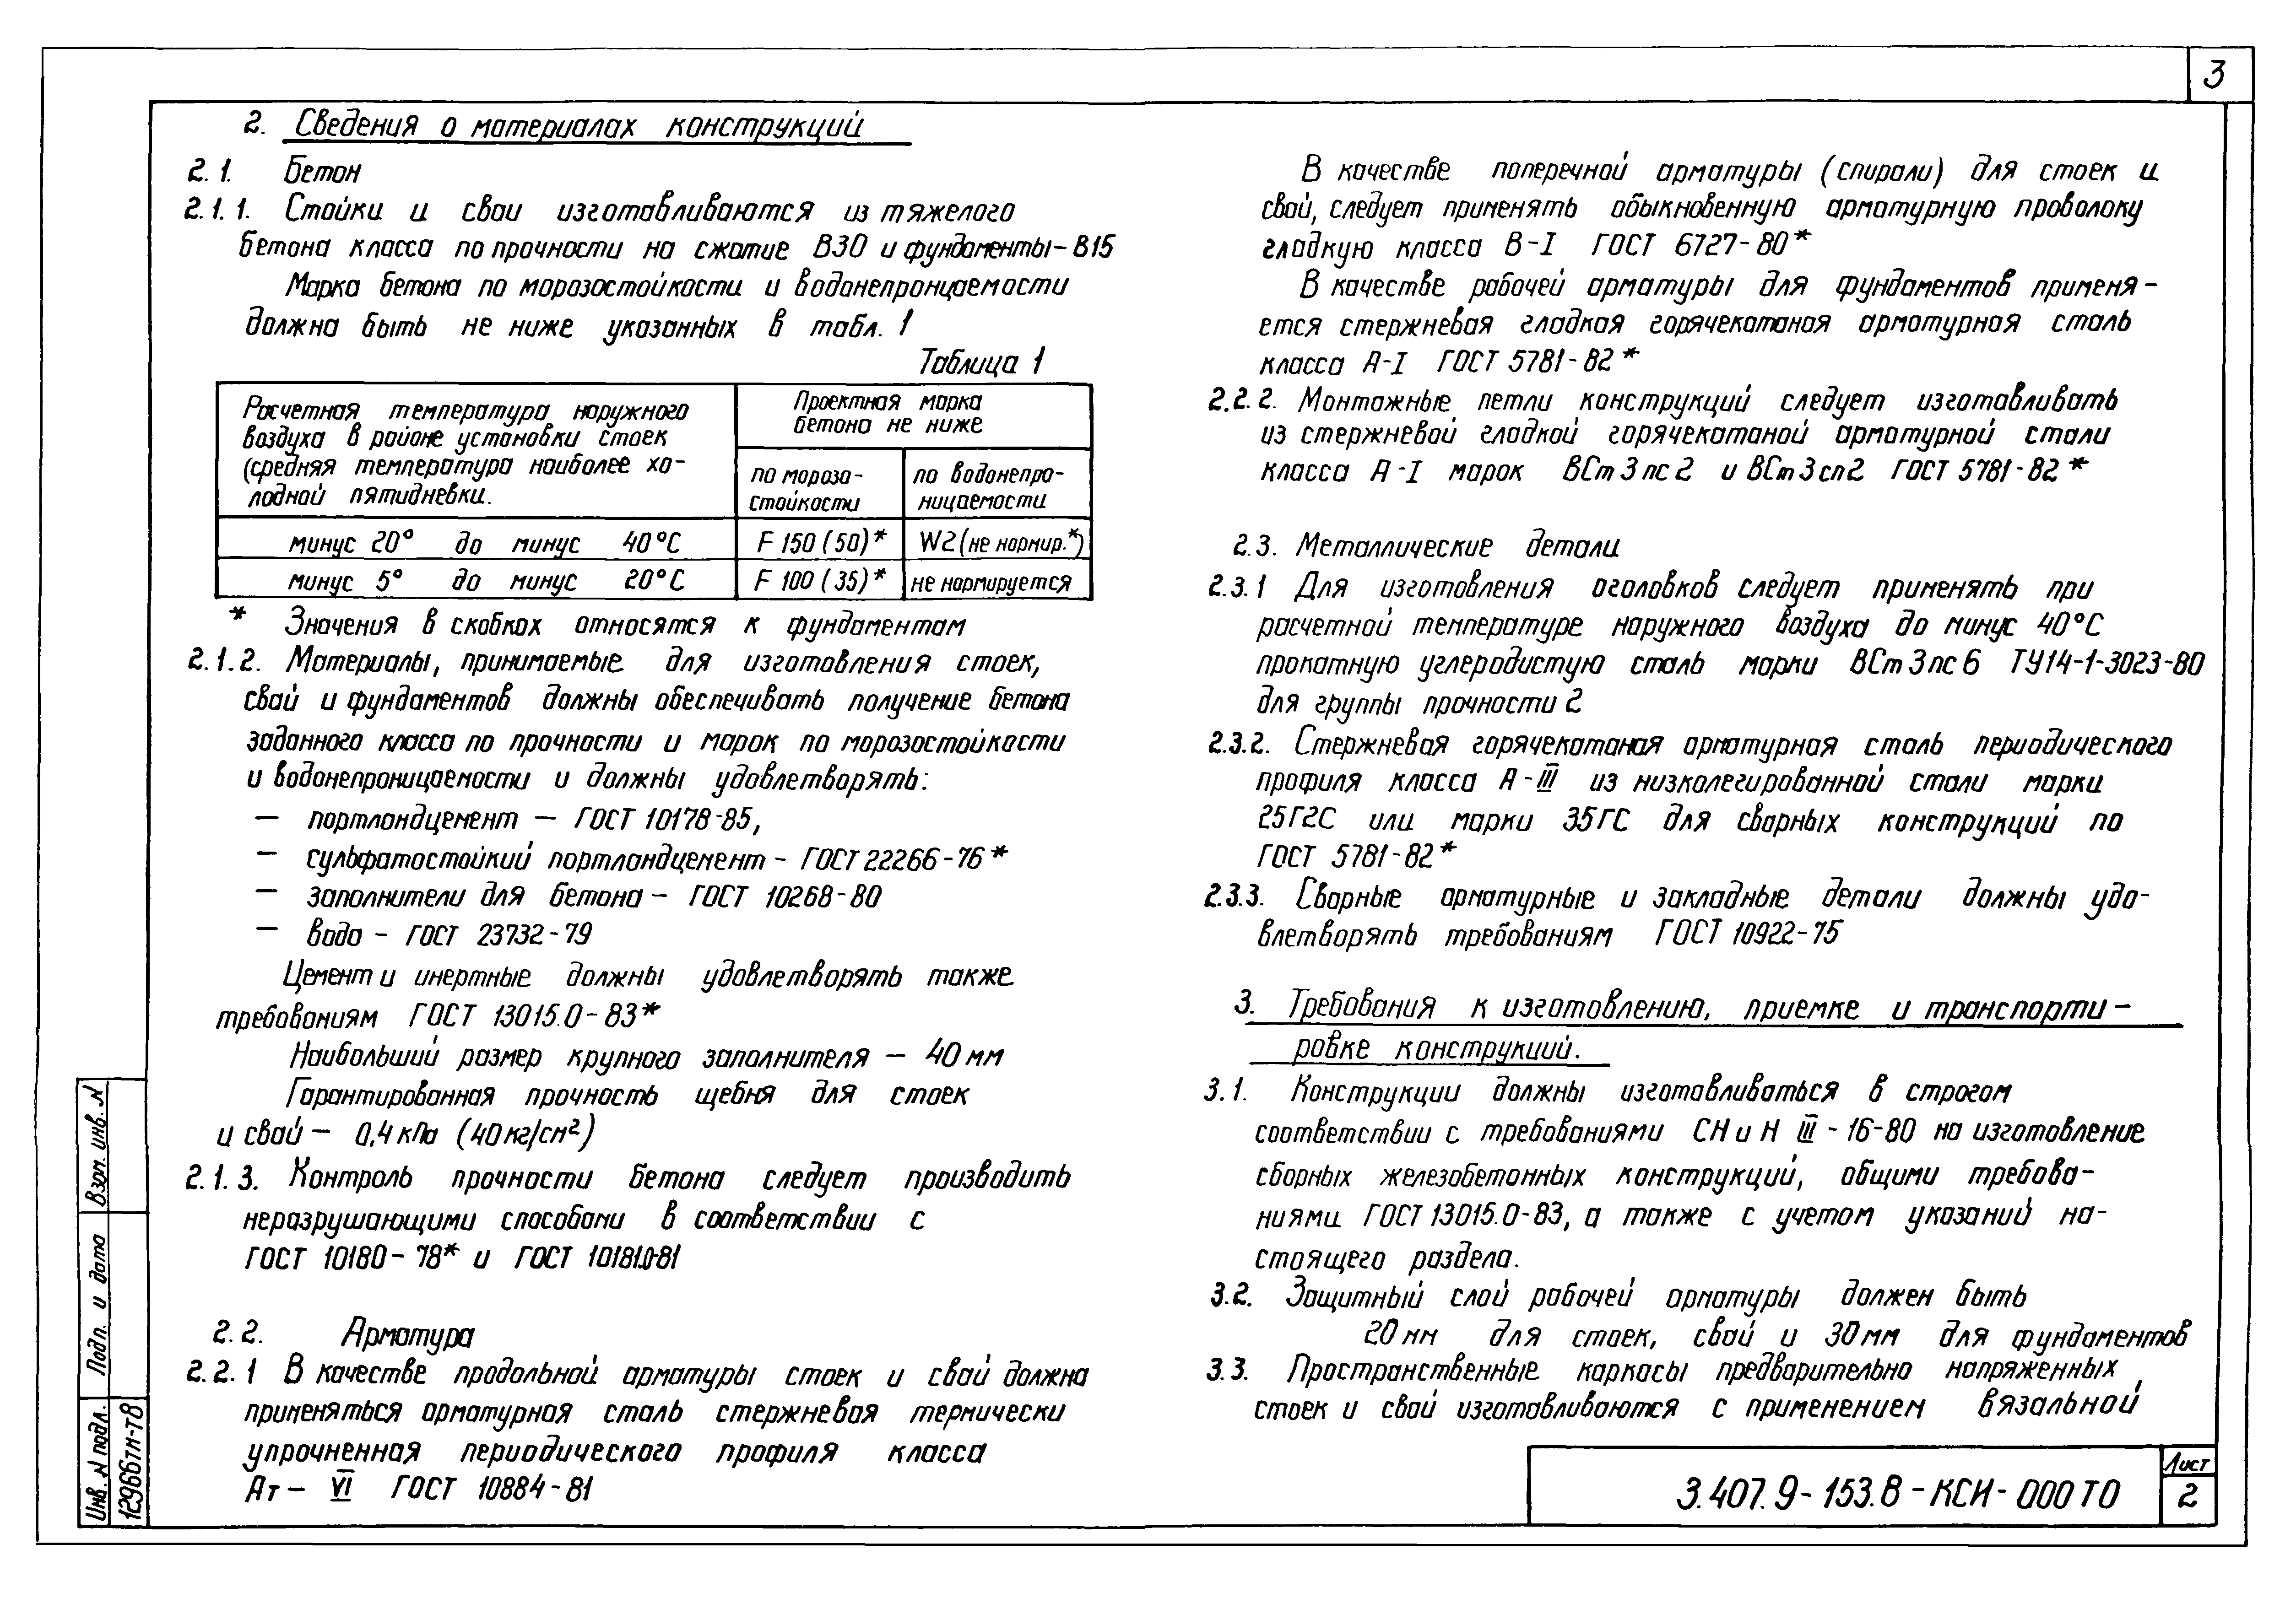 3
2. Сведения о материалах конструкций
2.1. Бетон
2.1.1. Стойки и сваи изготавливаются из тяжелого
бетона класса по прочности на сжатие В30 и фундаменты-В15
Марка бетона по морозостойкости и водонепронцаемости
должна быть не ниже указанных в табл. 1
Таблица 1
Расчетная температура наружного
воздуха в районе установки стоек
(средняя температура наиболее хо-
лодной пятидневки.
Проектная марка
бетона не ниже
по морозо-
стойкости
по водонепро-
ницаемости
минус 20° до минус 40°С F 150 (50)* W2 (не нормир.*)
минус 5° до минус 20°С F 100 (35)* не нормируется
* Значения в скобках относятся к фундаментам
2.1.2. Материалы, принимаемые для изготовления стоек,
свай и фундаментов должны обеспечивать получение бетона
заданного класса по прочности и марок по морозостойкости
и водонепроницаемости и должны удовлетворять:
— портландцемент — ГОСТ 10178-85,
— сульфатостойкий портландцемент - ГОСТ 22266-76*
— заполнители для бетона — ГОСТ 10268-80
— вода - ГОСТ 23732-79
Цемент и инертные должны удовлетворять также
требованиям ГОСТ 13015.0-83*
Наибольший размер крупного заполнителя — 40 мм
Гарантированная прочность щебня для стоек
и свай — 0,4 кПа (40 кг/см²)
2.1.3. Контроль прочности бетона следует производить
неразрушающими способами в соответствии с
ГОСТ 10180-78* и ГОСТ 10181.0-81
2.2. Арматура
2.2.1 В качестве продольной арматуры стоек и свай должна
применяться арматурная сталь стержневая термически
упрочненная периодического профиля класса
Ат- VI ГОСТ 10884-81
В качестве поперечной арматуры (спирали) для стоек и
свай, следует применять обыкновенную арматурную проволоку
гладкую класса В-I ГОСТ 6727-80*
В качестве рабочей арматуры для фундаментов применя-
ется стержневая гладкая горячекатаная арматурная сталь
класса А-I ГОСТ 5781-82*
2.2.2. Монтажные петли конструкций следует изготавливать
из стержневой гладкой горячекатаной арматурной стали
класса А-I марок ВСт3пс2 и ВСт3сп2 ГОСТ 5781-82*
2.3. Металлические детали
2.3.1 Для изготовления оголовков следует применять при
расчетной температуре наружного воздуха до минус 40°С
прокатную углеродистую сталь марки ВСт3пс6 ТУ14-1-3023-80
для группы прочности 2
2.3.2. Стержневая горячекатаная арматурная сталь периодического
профиля класса А-III из низколегированной стали марки
25Г2С или марки 35ГС для сварных конструкций по
ГОСТ 5781-82*
2.3.3. Сварные арматурные и закладные детали должны удо-
влетворять требованиям ГОСТ 10922-75
3. Требования к изготовлению, приемке и транспорти-
ровке конструкций.
3.1. Конструкции должны изготавливаться в строгом
соответствии с требованиями СНиН III-16-80 на изготовление
сборных железобетонных конструкций, общими требова-
ниями ГОСТ 13015.0-83, а также с учетом указаний на-
стоящего раздела.
3.2. Защитный слой рабочей арматуры должен быть
20 мм для стоек, свай и 30 мм для фундаментов
3.3. Пространственные каркасы предварительно напряженных,
стоек и свай изготавливаются с применением вязальной
Взам. инв. N
Подп. и дата
Инв. N подл.
12966тм-т8
3.407.9-153.8-КСИ-000ТО
Лист
2